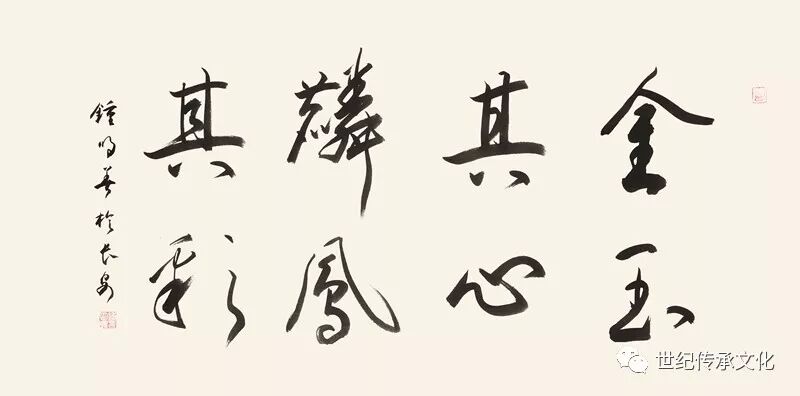 金玉
其心
麟鳳
其彩
鍾明善於長安
世纪传承文化